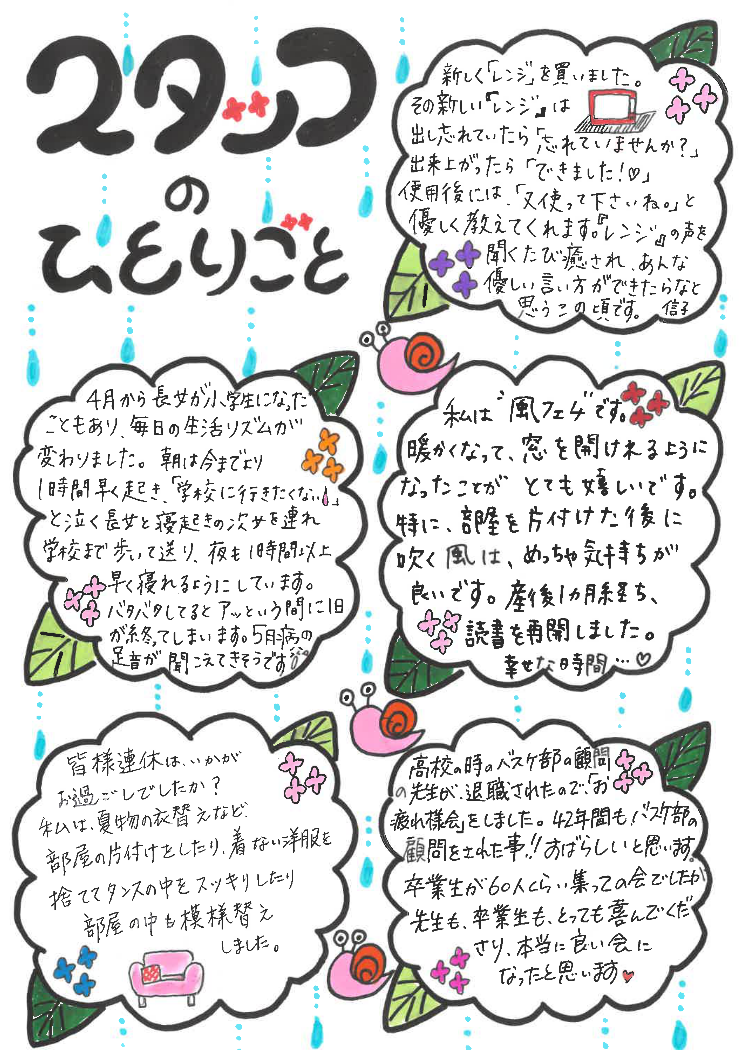 スタッフ
の
ひとりごと
新しく「レンジ」を買いました。
その新しい『レンジ』は
出し忘れていたら「忘れていませんか？」
出来上がったら「できました！♡」
使用後には、「又使って下さいね。」と
優しく教えてくれます。『レンジ』の声を
聞くたび癒され、あんな
優しい言い方ができたらなと
思うこの頃です。 信子
4月から長女が小学生になった
こともあり、毎日の生活リズムが
変わりました。朝は今までより
1時間早く起き、「学校に行きたくない」
と泣く長女と寝起きの次女を連れ
学校まで歩いて送り、夜も1時間以上
早く寝れるようにしています。
バタバタしてるとアッという間に1日
が終ってしまいます。5月病の
足音が聞こえてきそうです
私は“風フェチ”です。
暖かくなって、窓を開けれるように
なったことが とても嬉しいです。
特に、部屋を片付けた後に
吹く風は、めっちゃ気持ちが
良いです。産後1カ月経ち、
読書を再開しました。
幸せな時間…♡
皆様連休は、いかが
お過ごしでしたか？
私は、夏物の衣替えなど、
部屋の片付けをしたり、着ない洋服を
捨ててタンスの中をスッキリしたり
部屋の中も模様替え
しました。
高校の時のバスケ部の顧問
の先生が、退職されたので、「お
疲れ様会」をしました。42年間もバスケ部の
顧問をされた事!!すばらしいと思います。
卒業生が60人くらい集っての会でしたが
先生も、卒業生も、とっても喜んでくだ
さり、本当に良い会に
なったと思います♥